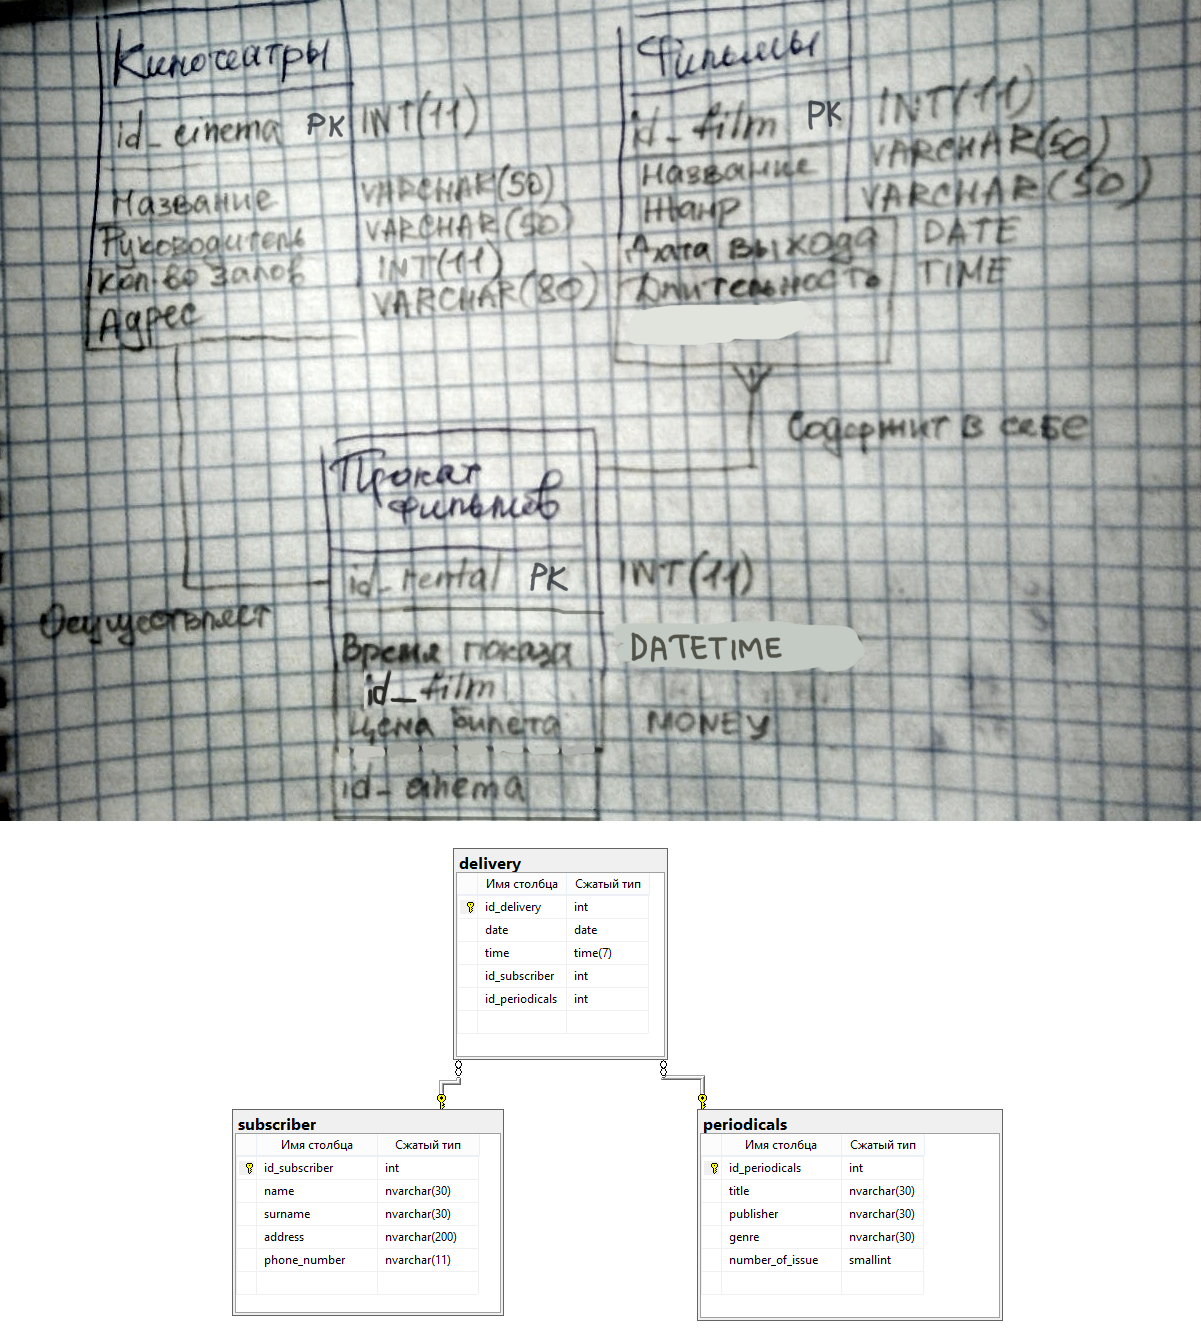 Кинотеатры
id_cinema PK INT(11)
Название VARCHAR(50)
Руководитель VARCHAR(50)
Кол-во залов INT(11)
Адрес VARCHAR(80)
Фильмы
id_film PK INT(11)
Название VARCHAR(50)
Жанр VARCHAR(50)
Дата выхода DATE
Длительность TIME
Содержит в себе
Прокат
фильмов
id_rental PK INT(11)
Осуществляет
Время показа DATETIME
id_film
Цена билета MONEY
id_cinema
delivery
Имя столбца Сжатый тип
id_delivery int
date date
time time(7)
id_subscriber int
id_periodicals int
subscriber
Имя столбца Сжатый тип
id_subscriber int
name nvarchar(30)
surname nvarchar(30)
address nvarchar(200)
phone_number nvarchar(11)
periodicals
Имя столбца Сжатый тип
id_periodicals int
title nvarchar(30)
publisher nvarchar(30)
genre nvarchar(30)
number_of_issue smallint